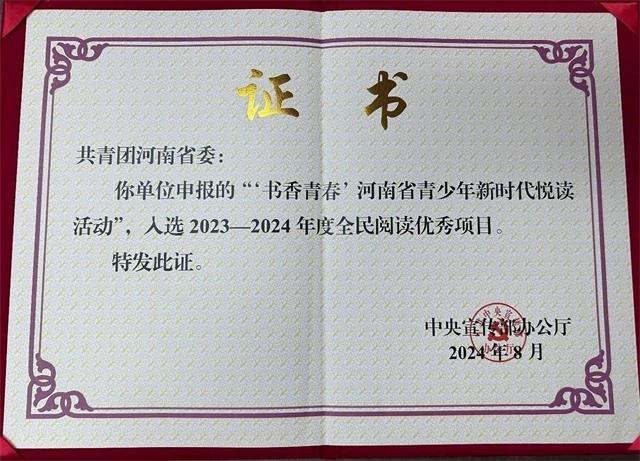 证 书
共青团河南省委：
你单位申报的“‘书香青春’河南省青少年新时代悦读
活动”，入选2023—2024年度全民阅读优秀项目。
特发此证。
中央宣传部办公厅
2024年8月